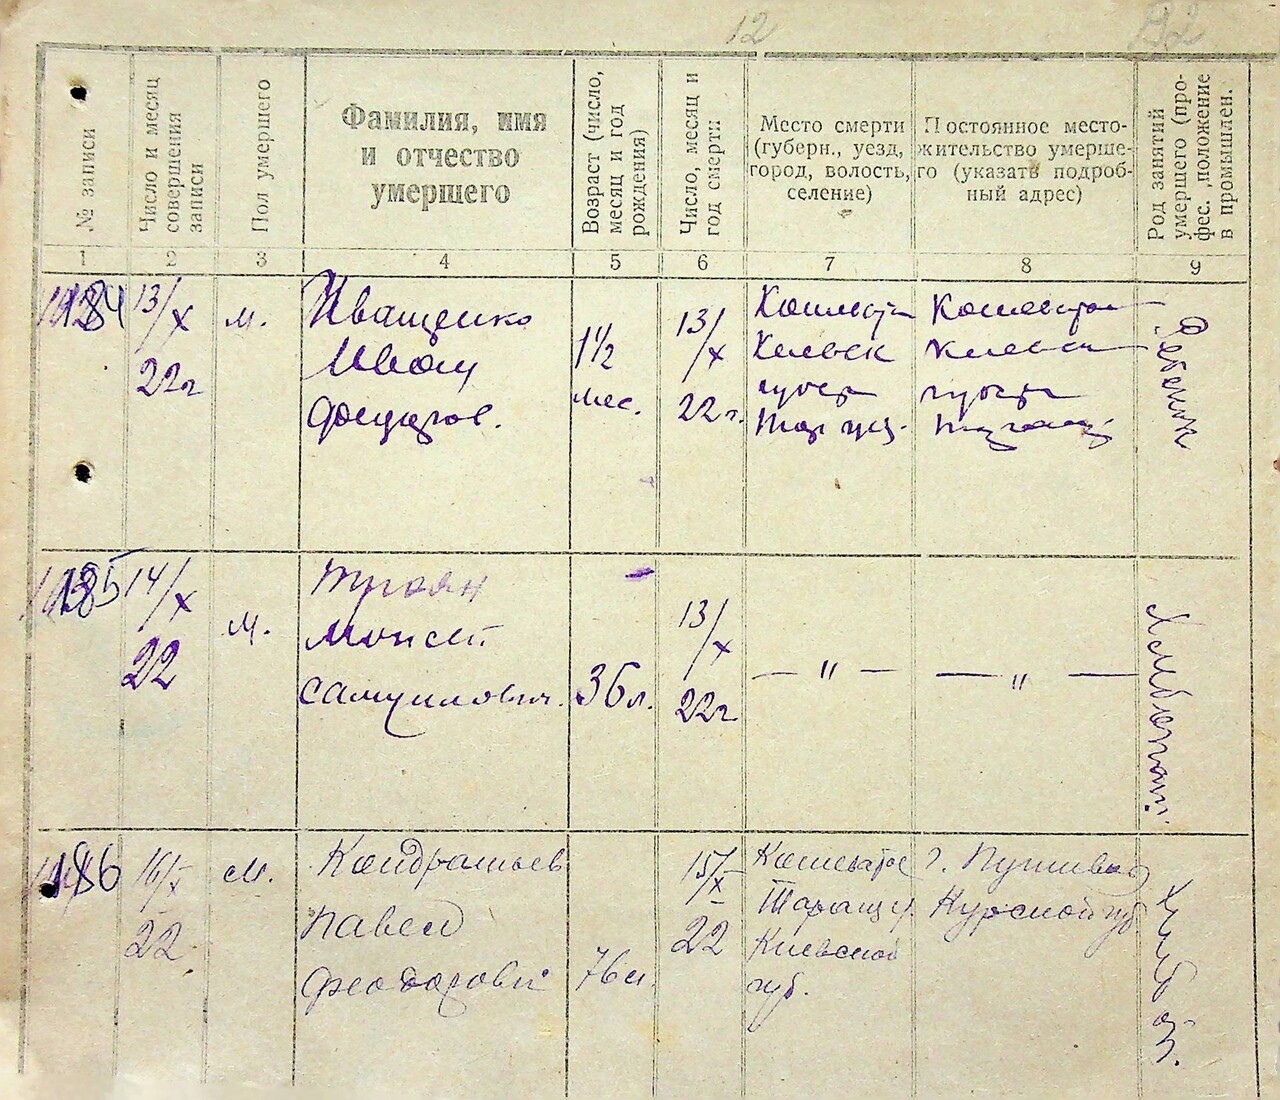 12
№ записи
Число и месяц
совершения
записи
Пол умершего
Фамилия, имя
и отчество
умершего
Возраст (число,
месяц и год
рождения)
Число, месяц и
год смерти
Место смерти
(губерн., уезд,
город, волость,
селение)
Постоянное место-
жительство умерше-
го (указать подроб-
ный адрес)
Род занятий
умершего (про-
фес. ,положение
в промышлен.
1 2 3 4 5 6 7 8 9
184
13/X
22г
м.
Иващенко
Иван
Федоров.
1½
мес.
13/X
22г.
губер
Тар уез.
Ребенок
185
14/X
22
м.
Троян
Моисей
Самуилович.
36л.
13/X
22г
— " —
— " —
186
16/X
22
м.
Кондратьев
Павел
Феодорович
76л.
15/X
22
Таращ у.
Киевской
губ.
г. Путивль
Курской губ